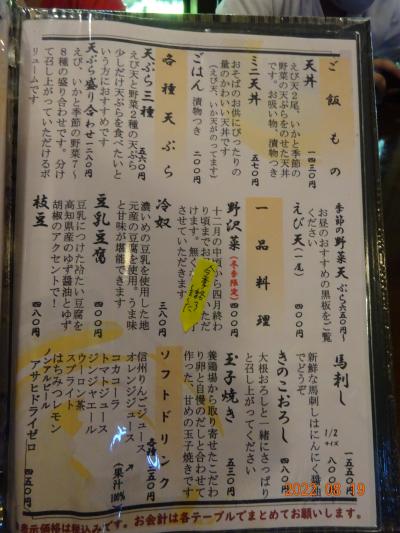 ご飯もの
天丼 一四三〇円
えび天2尾、いかと季節の
野菜の天ぷらをのせた天丼
です。お吸い物、漬物つき
ミニ天丼 五七〇円
おそばのお供にぴったりの
量のかわいい天丼です
(えび天、いか天がのってます)
ごはん 漬物つき 二〇〇円
各種天ぷら
天ぷら三種 五六〇円
えび天と野菜2種の天ぷら
少しだけ天ぷらを食べたいと
いう方におすすめです
天ぷら盛り合わせ 一二八〇円
えび、いかと季節の野菜7〜
8種の盛り合わせです。分け
て召し上がっていただけるボ
リュームです
季節の野菜天ぷら 六五〇円〜
お昼のおすすめの黒板をご覧
ください
えび天(一尾)
一品料理
野沢菜(冬季限定) 四〇〇円
十二月の中頃から四月終わ
り頃まで
けます。無く
させていただきます
今季終了しました
冷奴 三八〇円
濃いめの豆乳を使用した地
元産の豆腐を使用。うま味
と甘味が堪能できます
豆乳豆腐
豆乳につけた冷たい豆腐を
高知県産のゆず醤油とゆず
胡椒のアクセントで!
枝豆 四八〇円
馬刺し 一五五〇円
1/2サイズ 八〇〇円
新鮮な馬刺しはにんにく醤油
でどうぞ
きのこおろし 四八〇円
大根おろしと一緒にさっぱり
と召し上がってください
玉子焼き 五三〇円
養鶏場から取り寄せたこだわ
り卵と自慢のだしと合わせて
作った、甘めの玉子焼きです
ソフトドリンク
信州りんごジュース
オレンジジュース
(果汁100%)
コカコーラ
トマトジュース
ジンジャエール
ウーロン茶
スプライト
はちみつレモン
ノンアルビール
アサヒドライゼロ 四五〇円
表示価格は税込みです。お会計は各テーブルでまとめてお願いします。
2022 08 19